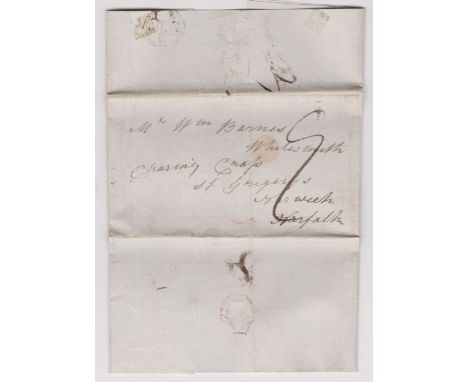 Mr Wm Barnes
Whitesmith
Charing Cross
St Gregories
Norwich
Norfolk